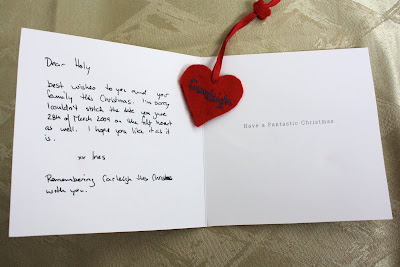 Dear Holy
best wishes to you and your
family this Christmas. I'm sorry
I couldn't stitch the date you gave
28th of March 2009 on the felt heart
as well. I hope you like it as it
is.
xx Ines
Remembering Carleigh this Christmas
with you.
Carleigh
Have a Fantastic Christmas